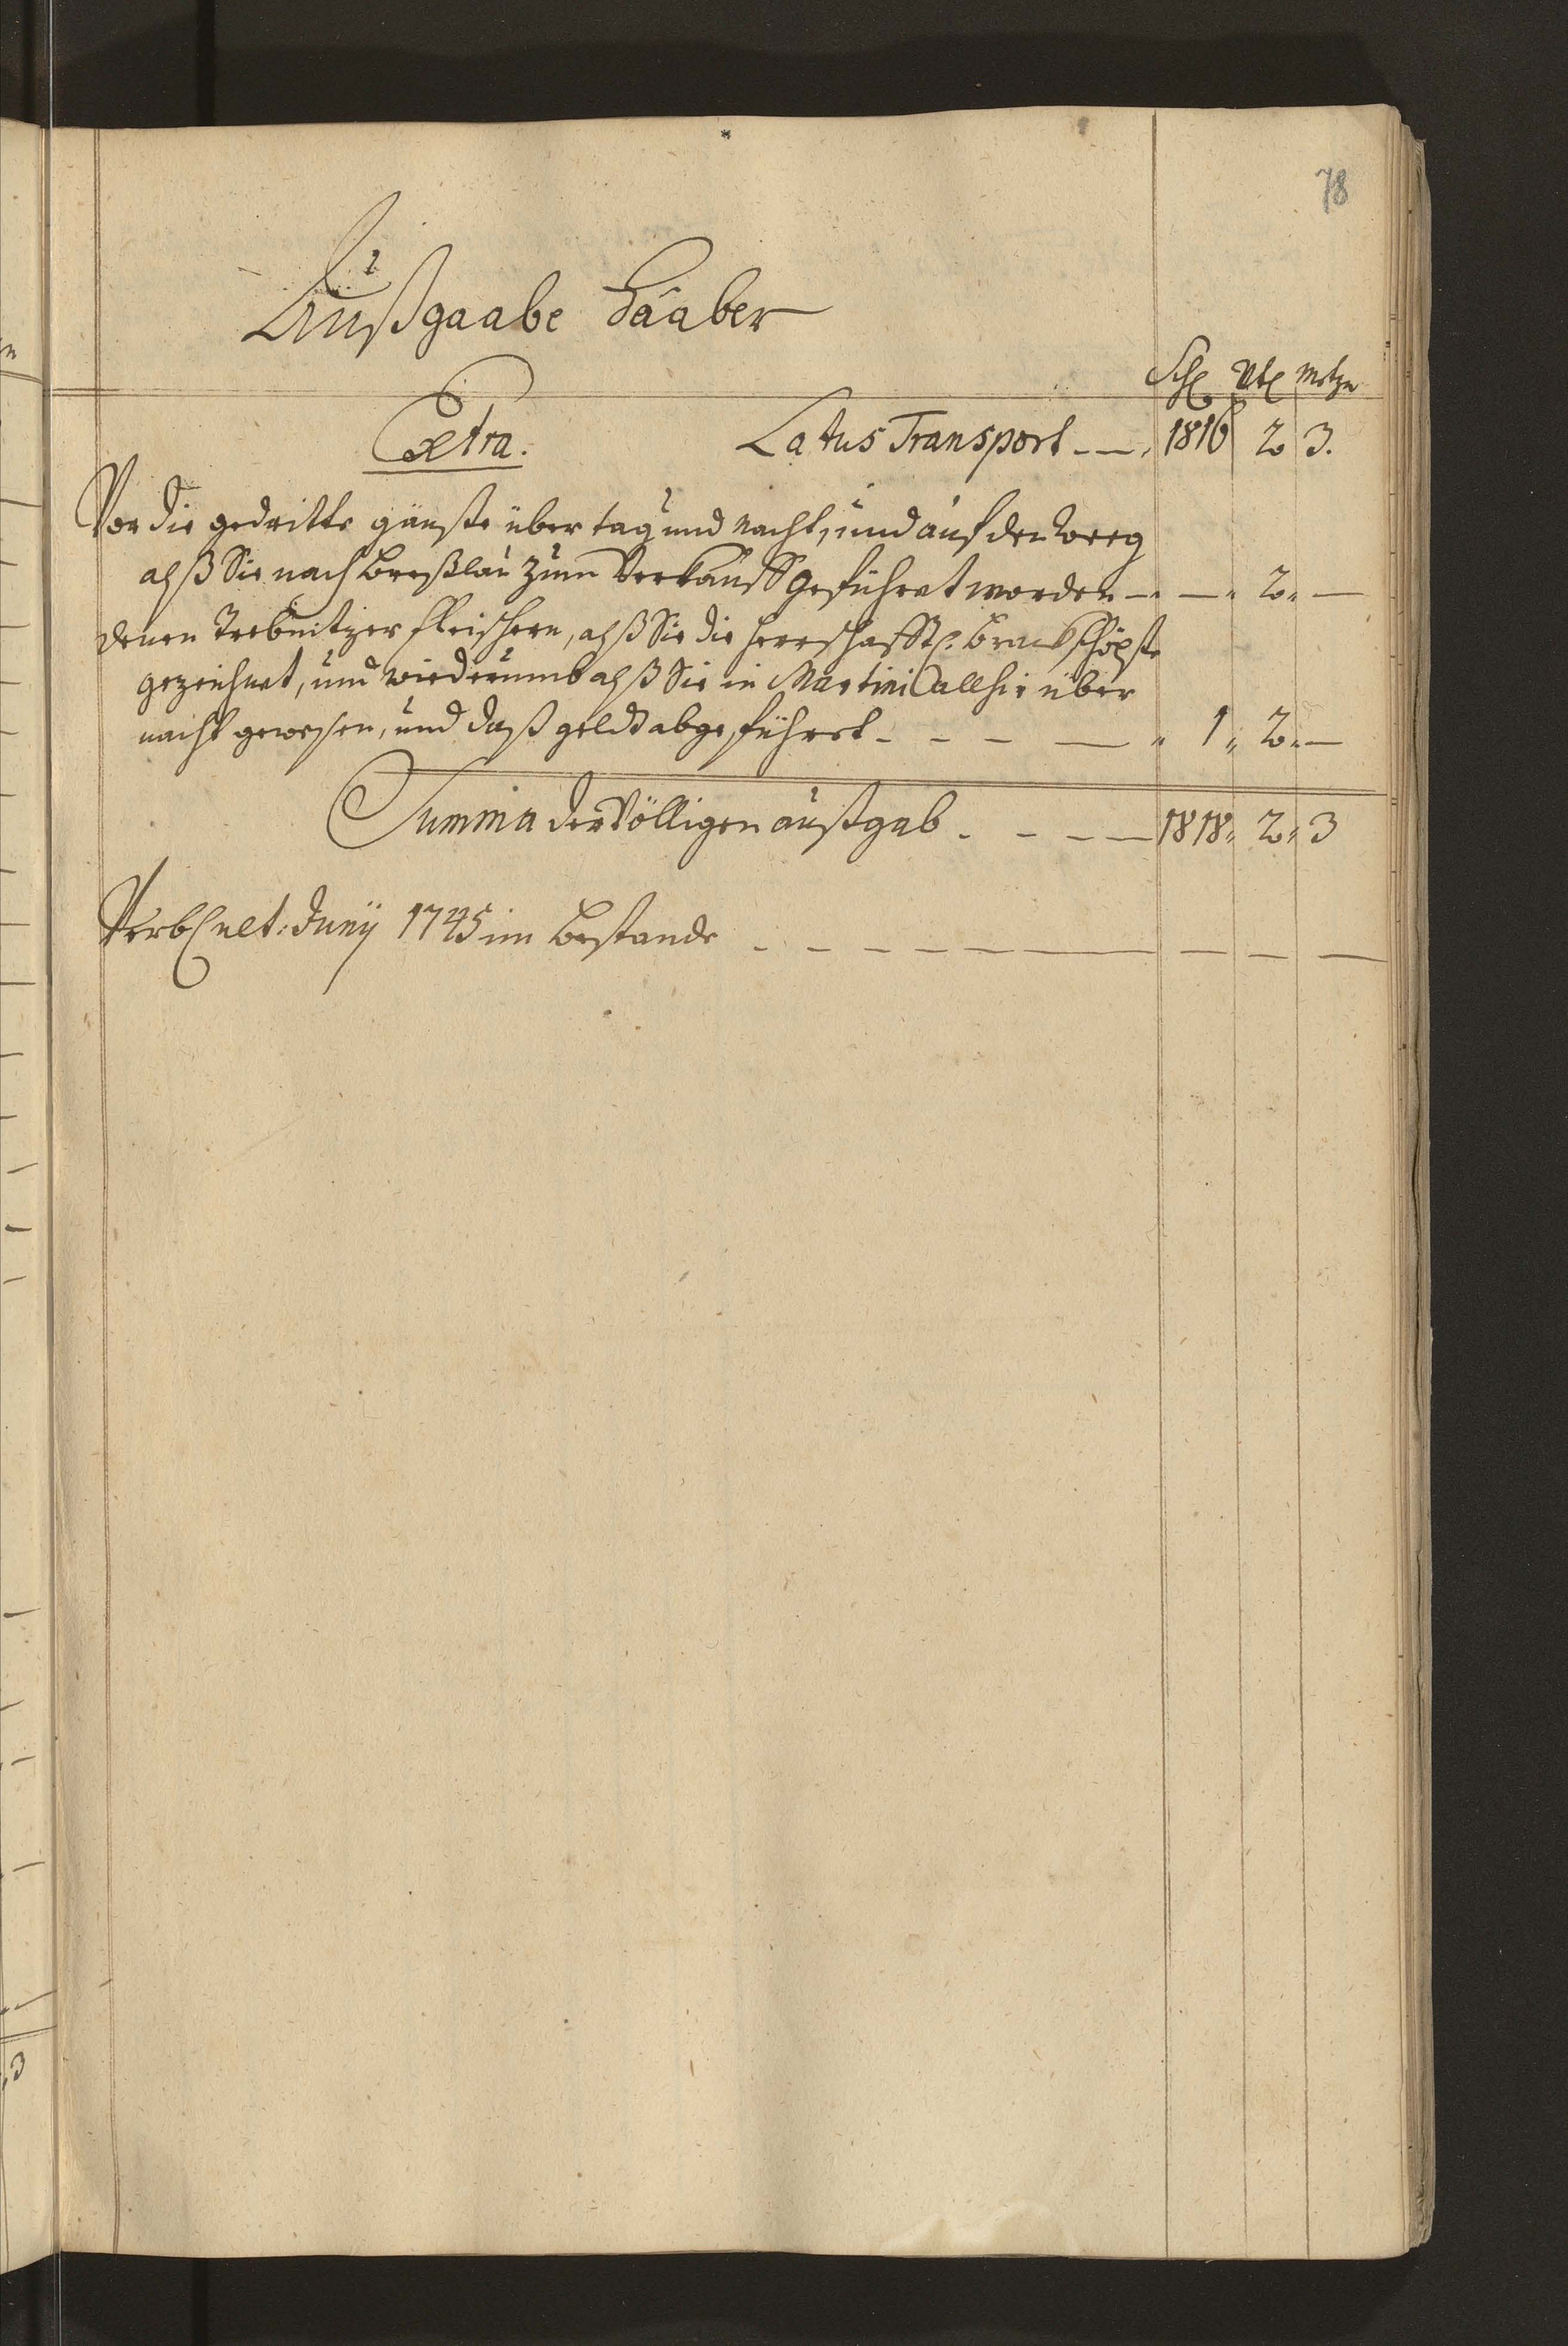 78
Außgaabe Haaber
Schl Vtl Metzn
Extra. Latus Transport 1816 2 3.
Vor die gedritte gänße über tag und nacht, und auf den weeg
alß Sie nach Breßlau zum Verkauff geführet worden — — „ 2 „ —
denen Trebnitzer fleischern, alß Sie die herrschafftl. schöpße
gezeichnet, und wiederumb alß Sie in Martini allhie über
nacht gewesen, und daß geldt abgeführet - - - — „ 1 „ 2 „ —
Summa der Völligen außgab - - - — 1818 „ 2 „ 3
Verbl ult: Juny 1745 im Bestande - - - - — — — —